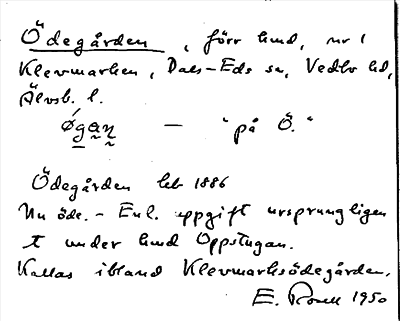 Ödegården, förr hmd, nr 1
Klevmarken, Dals-Eds sn, Vedbo hd,
Älvsb. l.
øgan — "på Ö."
Ödegården leb 1886
Nu öde. - Enl. uppgift ursprungligen
t under hmd Oppstugan.
Kallas ibland Klevmarksödegården.
E. 1950